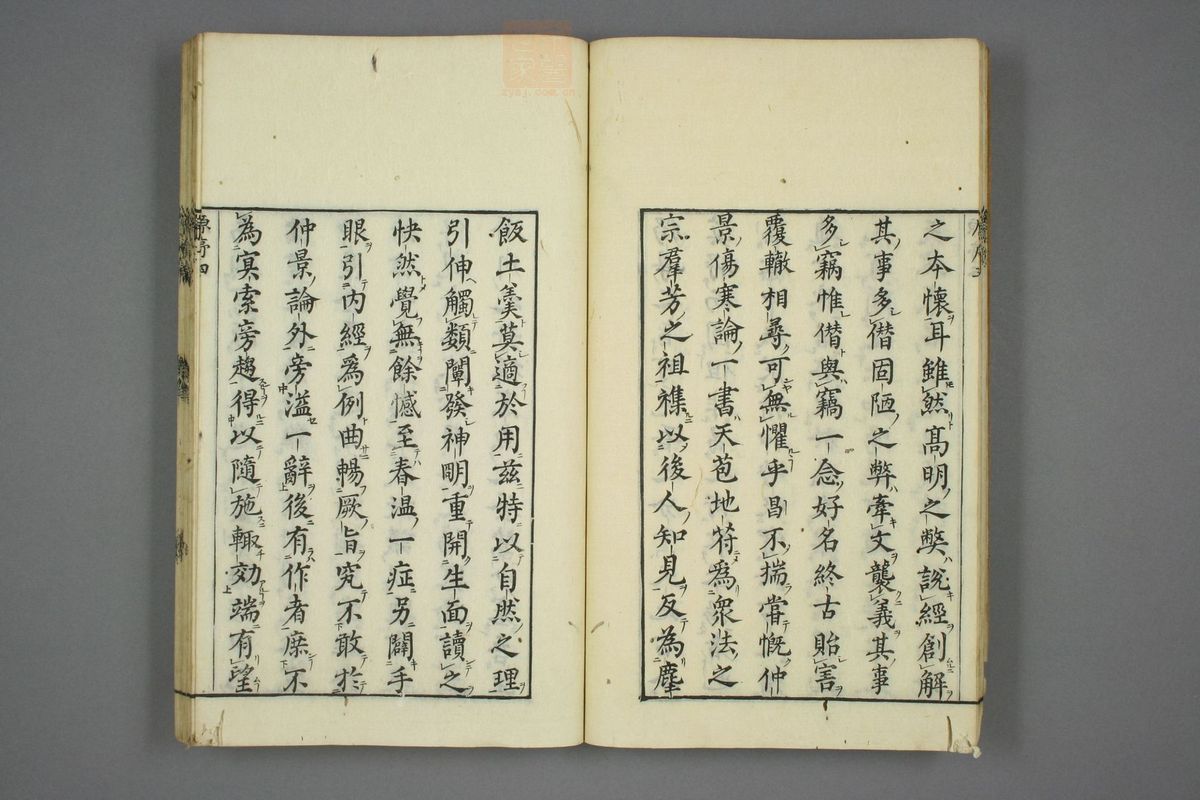 之本懷耳雖然高明之弊說經創解
其事多僭固陋之弊牽文襲義其事
多竊惟僭與竊一念好名終古貽害
覆轍相尋可無懼乎昌不揣嘗慨仲
景傷寒論一書天苞地符為衆法之
宗羣芳之祖襍以後人知見反為塵
飯土羹莫適於用兹特以自然之理
引伸觸類闡發神明重開生面讀之
快然覺無餘憾至春温一症另闢手
眼引内經爲例曲暢厥旨究不敢於
仲景論外旁溢一辭後有作者庶不
為冥索旁趨得以隨施輙効端有望
原序四
zysj.com.cn